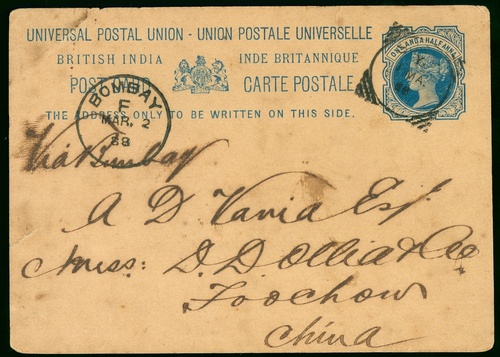 UNIVERSAL POSTAL UNION - UNION POSTALE UNIVERSELLE
BRITISH INDIA INDE BRITANNIQUE
POST CARTE POSTALE
THE ADDRESS ONLY TO BE WRITTEN ON THIS SIDE.
ONE ANDA HALF ANNA
BOMBAY
F
MAR. 2
88
Via Bombay
A D Vania Esq.
Mess: D. D. Ollia & Co
Foochow
China